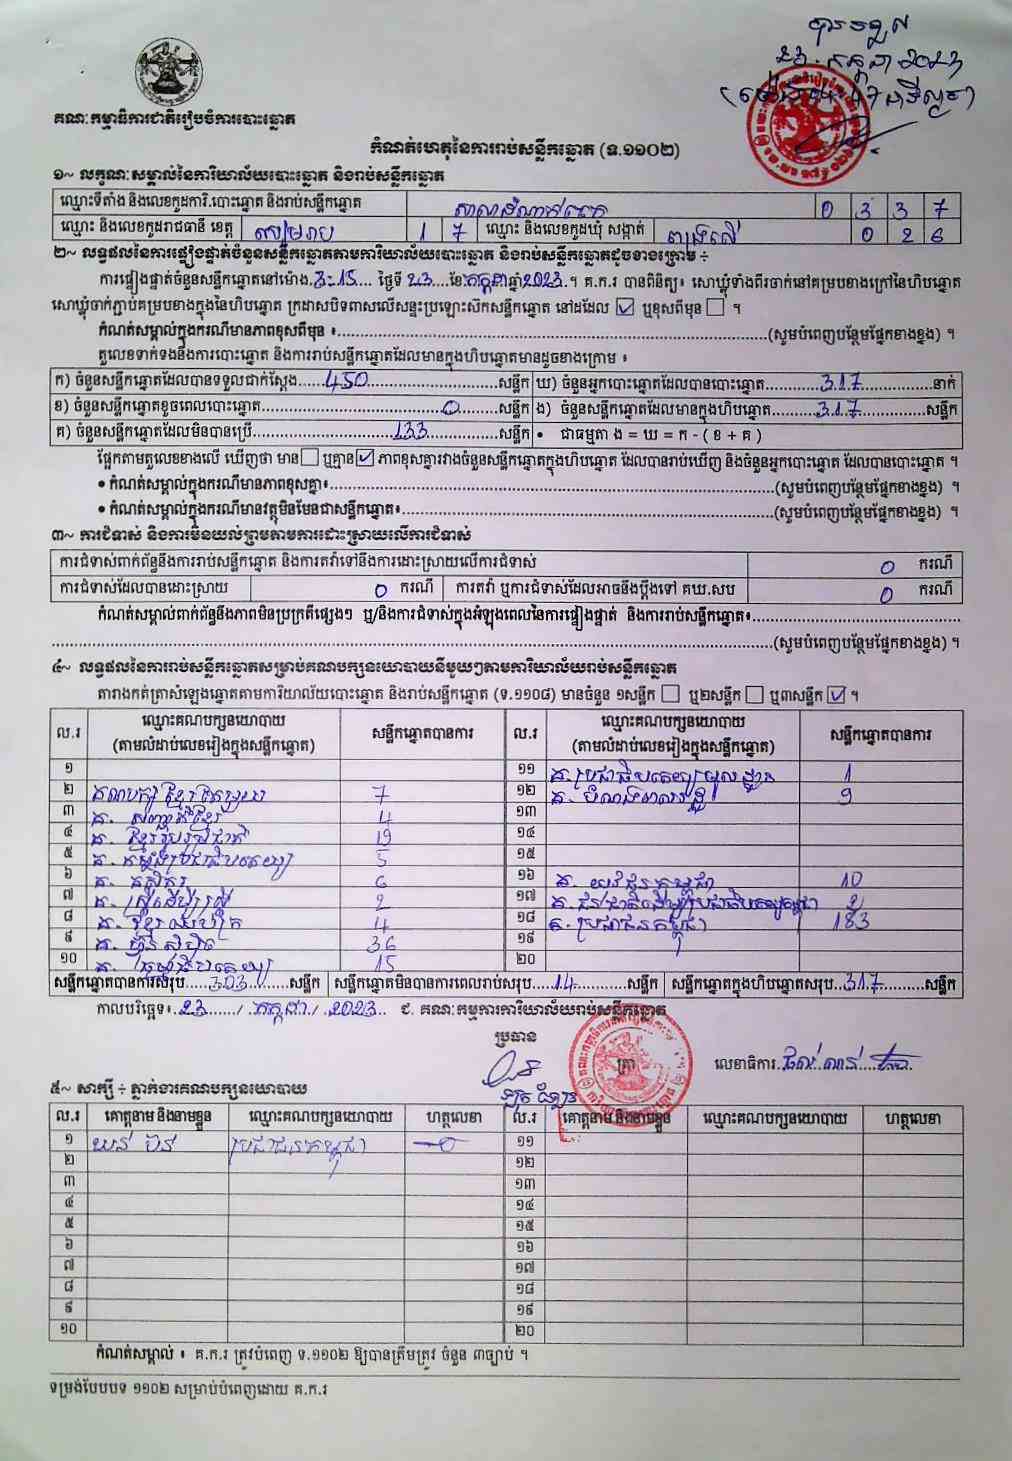 បានចូល
២៦. កក្កដា ២០២៣
គណៈកម្មាធិការជាតិរៀបចំការបោះឆ្នោត
កំណត់ហេតុនៃការរាប់សន្លឹកឆ្នោត (ទ.១១០២)
១~ លក្ខណៈសម្គាល់នៃការិយាល័យបោះឆ្នោត និងរាប់សន្លឹកឆ្នោត
ឈ្មោះទីតាំង និងលេខកូដការិ.បោះឆ្នោត និងរាប់សន្លឹកឆ្នោត 0 3 3 7
ឈ្មោះ និងលេខកូដរាជធានី ខេត្ត សៀមរាប 1 7 ឈ្មោះ និងលេខកូដឃុំ សង្កាត់ ពង្រលើ 0 2 6
២~ លទ្ធផលនៃការផ្ទៀងផ្ទាត់ចំនួនសន្លឹកឆ្នោតតាមការិយាល័យបោះឆ្នោត និងរាប់សន្លឹកឆ្នោតដូចខាងក្រោម ÷
ការផ្ទៀងផ្ទាត់ចំនួនសន្លឹកឆ្នោតនៅម៉ោង 3:15 ថ្ងៃទី 23 ខែ កក្កដា ឆ្នាំ 2023 ។ គ.ក.រ បានពិនិត្យ៖ សោឃ្លុំទាំងពីរចាក់នៅគម្របខាងក្រៅនៃហិបឆ្នោត
សោឃ្លុំចាក់ភ្ជាប់គម្របខាងក្នុងនៃហិបឆ្នោត ក្រដាសបិទពាសលើសន្ទះប្រឡោះសឹកសន្លឹកឆ្នោត នៅដដែល ☑ ឬខុសពីមុន ☐ ។
កំណត់សម្គាល់ក្នុងករណីមានភាពខុសពីមុន ៖ (សូមបំពេញបន្ថែមផ្នែកខាងខ្នង) ។
តួលេខទាក់ទងនឹងការបោះឆ្នោត និងការរាប់សន្លឹកឆ្នោតដែលមានក្នុងហិបឆ្នោតមានដូចខាងក្រោម ៖
ក) ចំនួនសន្លឹកឆ្នោតដែលបានទទួលជាក់ស្ដែង 450 សន្លឹក ឃ) ចំនួនអ្នកបោះឆ្នោតដែលបានបោះឆ្នោត 317 នាក់
ខ) ចំនួនសន្លឹកឆ្នោតខូចពេលបោះឆ្នោត 0 សន្លឹក ង) ចំនួនសន្លឹកឆ្នោតដែលមានក្នុងហិបឆ្នោត 317 សន្លឹក
គ) ចំនួនសន្លឹកឆ្នោតដែលមិនបានប្រើ 133 សន្លឹក • ជាធម្មតា ង = ឃ = ក - ( ខ + គ )
ផ្អែកតាមតួលេខខាងលើ ឃើញថា មាន ☐ ឬគ្មាន ☑ ភាពខុសគ្នារវាងចំនួនសន្លឹកឆ្នោតក្នុងហិបឆ្នោត ដែលបានរាប់ឃើញ និងចំនួនអ្នកបោះឆ្នោត ដែលបានបោះឆ្នោត ។
• កំណត់សម្គាល់ក្នុងករណីមានភាពខុសគ្នា៖ (សូមបំពេញបន្ថែមផ្នែកខាងខ្នង) ។
• កំណត់សម្គាល់ក្នុងករណីមានវត្ថុមិនមែនជាសន្លឹកឆ្នោត៖ (សូមបំពេញបន្ថែមផ្នែកខាងខ្នង) ។
៣~ ការជំទាស់ និងការមិនយល់ព្រមតាមការដោះស្រាយលើការជំទាស់
ការជំទាស់ពាក់ព័ន្ធនឹងការរាប់សន្លឹកឆ្នោត និងការតវ៉ាទៅនឹងការដោះស្រាយលើការជំទាស់ 0 ករណី
ការជំទាស់ដែលបានដោះស្រាយ 0 ករណី ការតវ៉ា ឬការជំទាស់ដែលអាចនឹងប្ដឹងទៅ គឃ.សប 0 ករណី
កំណត់សម្គាល់ពាក់ព័ន្ធនឹងភាពមិនប្រក្រតីផ្សេងៗ ឬ/និងការជំទាស់ក្នុងអំឡុងពេលនៃការផ្ទៀងផ្ទាត់ និងការរាប់សន្លឹកឆ្នោត៖
(សូមបំពេញបន្ថែមផ្នែកខាងខ្នង) ។
៤~ លទ្ធផលនៃការរាប់សន្លឹកឆ្នោតសម្រាប់គណបក្សនយោបាយនីមួយៗតាមការិយាល័យរាប់សន្លឹកឆ្នោត
តារាងកត់ត្រាសំឡេងឆ្នោតតាមការិយាល័យបោះឆ្នោត និងរាប់សន្លឹកឆ្នោត (ទ.១១០៨) មានចំនួន ១សន្លឹក ☐ ឬ២សន្លឹក ☐ ឬ៣សន្លឹក ☑ ។
ល.រ ឈ្មោះគណបក្សនយោបាយ (តាមលំដាប់លេខរៀងក្នុងសន្លឹកឆ្នោត) សន្លឹកឆ្នោតបានការ ល.រ ឈ្មោះគណបក្សនយោបាយ (តាមលំដាប់លេខរៀងក្នុងសន្លឹកឆ្នោត) សន្លឹកឆ្នោតបានការ
១ ១១ គ.ប្រជាធិបតេយ្យមូលដ្ឋាន 1
២ គណបក្ស ខ្មែរតែមួយ 7 ១២ គ. បំណងពលរដ្ឋ 9
៣ គ. សញ្ជាតិខ្មែរ 4 ១៣
៤ គ. ខ្មែររួបរួមជាតិ 19 ១៤
៥ គ. កម្លាំងប្រជាធិបតេយ្យ 5 ១៥
៦ គ. កសិករ 6 ១៦ គ. យុវជនកម្ពុជា 10
៧ គ. ស្ត្រីដើម្បីស្ត្រី 2 ១៧ គ.ជនជាតិដើមប្រជាធិបតេយ្យកម្ពុជា 2
៨ គ. ខ្មែរឈប់ក្រ 4 ១៨ គ.ប្រជាជនកម្ពុជា 183
៩ គ. ហ៊្វុនស៊ិនប៉ិច 36 ១៩
១០ គ. ធម្មាធិបតេយ្យ 15 ២០
សន្លឹកឆ្នោតបានការសរុប 303 សន្លឹក សន្លឹកឆ្នោតមិនបានការពេលរាប់សរុប 14 សន្លឹក សន្លឹកឆ្នោតក្នុងហិបឆ្នោតសរុប 317 សន្លឹក
កាលបរិច្ឆេទ៖ 23 / កក្កដា / 2023 ជ. គណៈកម្មការការិយាល័យរាប់សន្លឹកឆ្នោត
ប្រធាន
ត្រា លេខាធិការ
៥~ សាក្សី ÷ ភ្នាក់ងារគណបក្សនយោបាយ
ល.រ គោត្តនាម និងនាមខ្លួន ឈ្មោះគណបក្សនយោបាយ ហត្ថលេខា ល.រ គោត្តនាម និងនាមខ្លួន ឈ្មោះគណបក្សនយោបាយ ហត្ថលេខា
១ យន់ ប៉ន់ ប្រជាជនកម្ពុជា ១១
២ ១២
៣ ១៣
៤ ១៤
៥ ១៥
៦ ១៦
៧ ១៧
៨ ១៨
៩ ១៩
១០ ២០
កំណត់សម្គាល់ ៖ គ.ក.រ ត្រូវបំពេញ ទ.១១០២ ឱ្យបានត្រឹមត្រូវ ចំនួន ៣ច្បាប់ ។
ទម្រង់បែបបទ ១១០២ សម្រាប់បំពេញដោយ គ.ក.រ